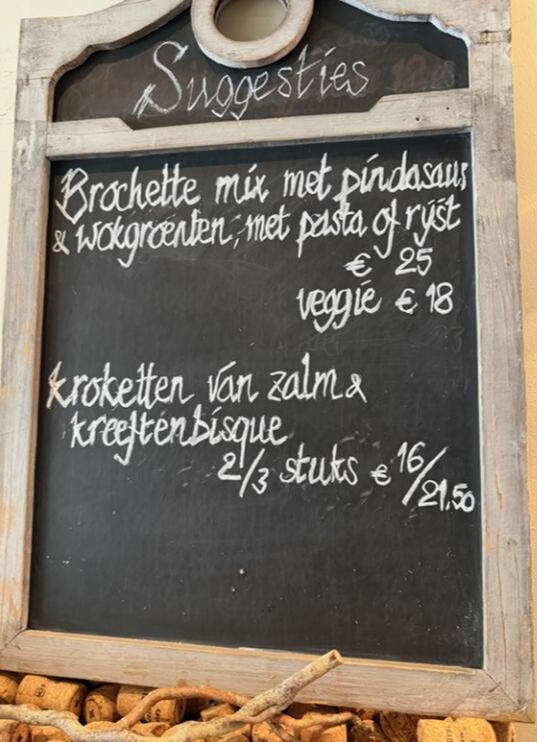 Suggesties
Brochette mix met pindasaus
& wokgroenten, met pasta of rijst
€ 25
veggie € 18
kroketten van zalm &
kreeftenbisque
2/3 stuks € 16/21,50